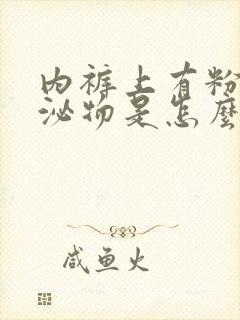 内裤上有粉
泌物是怎麼
咸鱼火